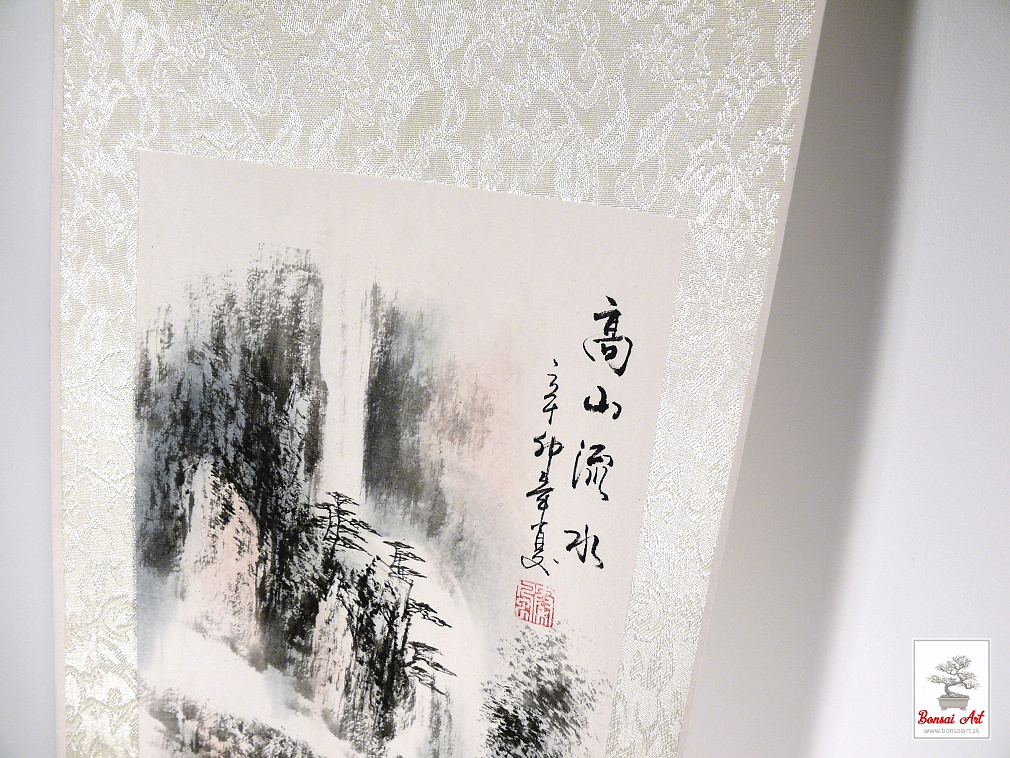 高山流水
辛卯年夏
Bonsai Art
www.bonsaiart.sk